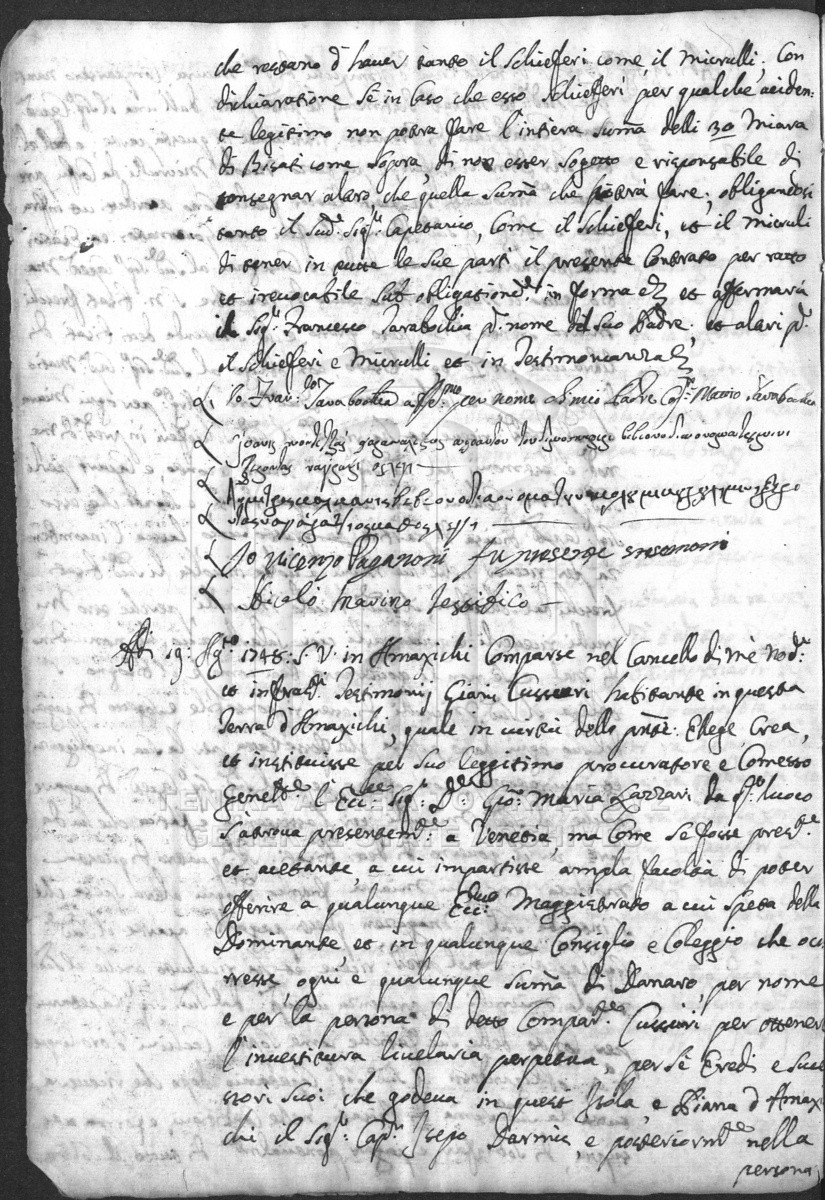 che restano d'haver tanto il Schiefferi come il Micrulli; Con
dichiaratione Se in Caso che esso Schiefferi per qualche aciden:
te legitimo non potra fare l'intiera Suma delli 30 Miara
di Bisati come Sopra, di non esser Sogetto e risponsabile di
consegnar a loro, che quella Suma che potrà fare; obligandosi
tanto il Sud:º Sig:r Capetanio, Come il Schiefferi, et il Micruli
di tener in tutte le Sue parti il presente Contrato per ratto
et irevocabile Sub obligatione in forma et affermarà
il Sig:r Francesco Tarabochia p: nome del Suo Padre; et alari p:
il Schiefferi e Micrulli et in Testimonianza
Io Fran:co Tarabochia aff:mo per nome di mio Padre Cap: Mattio Tarabochia
Io Vicenzo Paganoni fu presente
Nicolò Marino Testifico
Adi 19: Ag:to 1748: S.V. in Amaxichi Comparse nel Cancello di me Nod:º
et infrad:i Testimonij Giani Cussuri habitante in questa
Terra d'Amaxichi, quale in virtù dello pnte: Ellege, Crea,
et instituisse per Suo leggitimo procuratore e Comesso
Genel:te l'Ecc:te Sig:r D:r Gio: Maria Lazzari da q:to luoco
S'atrova presentem:te a Venetia, ma Come Se fosse pres:te
et acetante, a cui impartisse ampla facoltà di poter
offerire a qualunque Ecc:mo Maggistrato a cui Speta della
Dominante, et in qualunque Consiglio e Coleggio che oco
resse, ogni e qualunque Suma di Danaro, per nome
e per la persona di detto Compar:te Cussuri per ottener
l'investitura livelaria perpetua, per Sè Eredi e Suce
ssori Suoi che godeva in quest Isola e Piana d'Amaxi
chi il Sig:r Cap:n Isepo Darmis, e posteriorm:te nella
persona